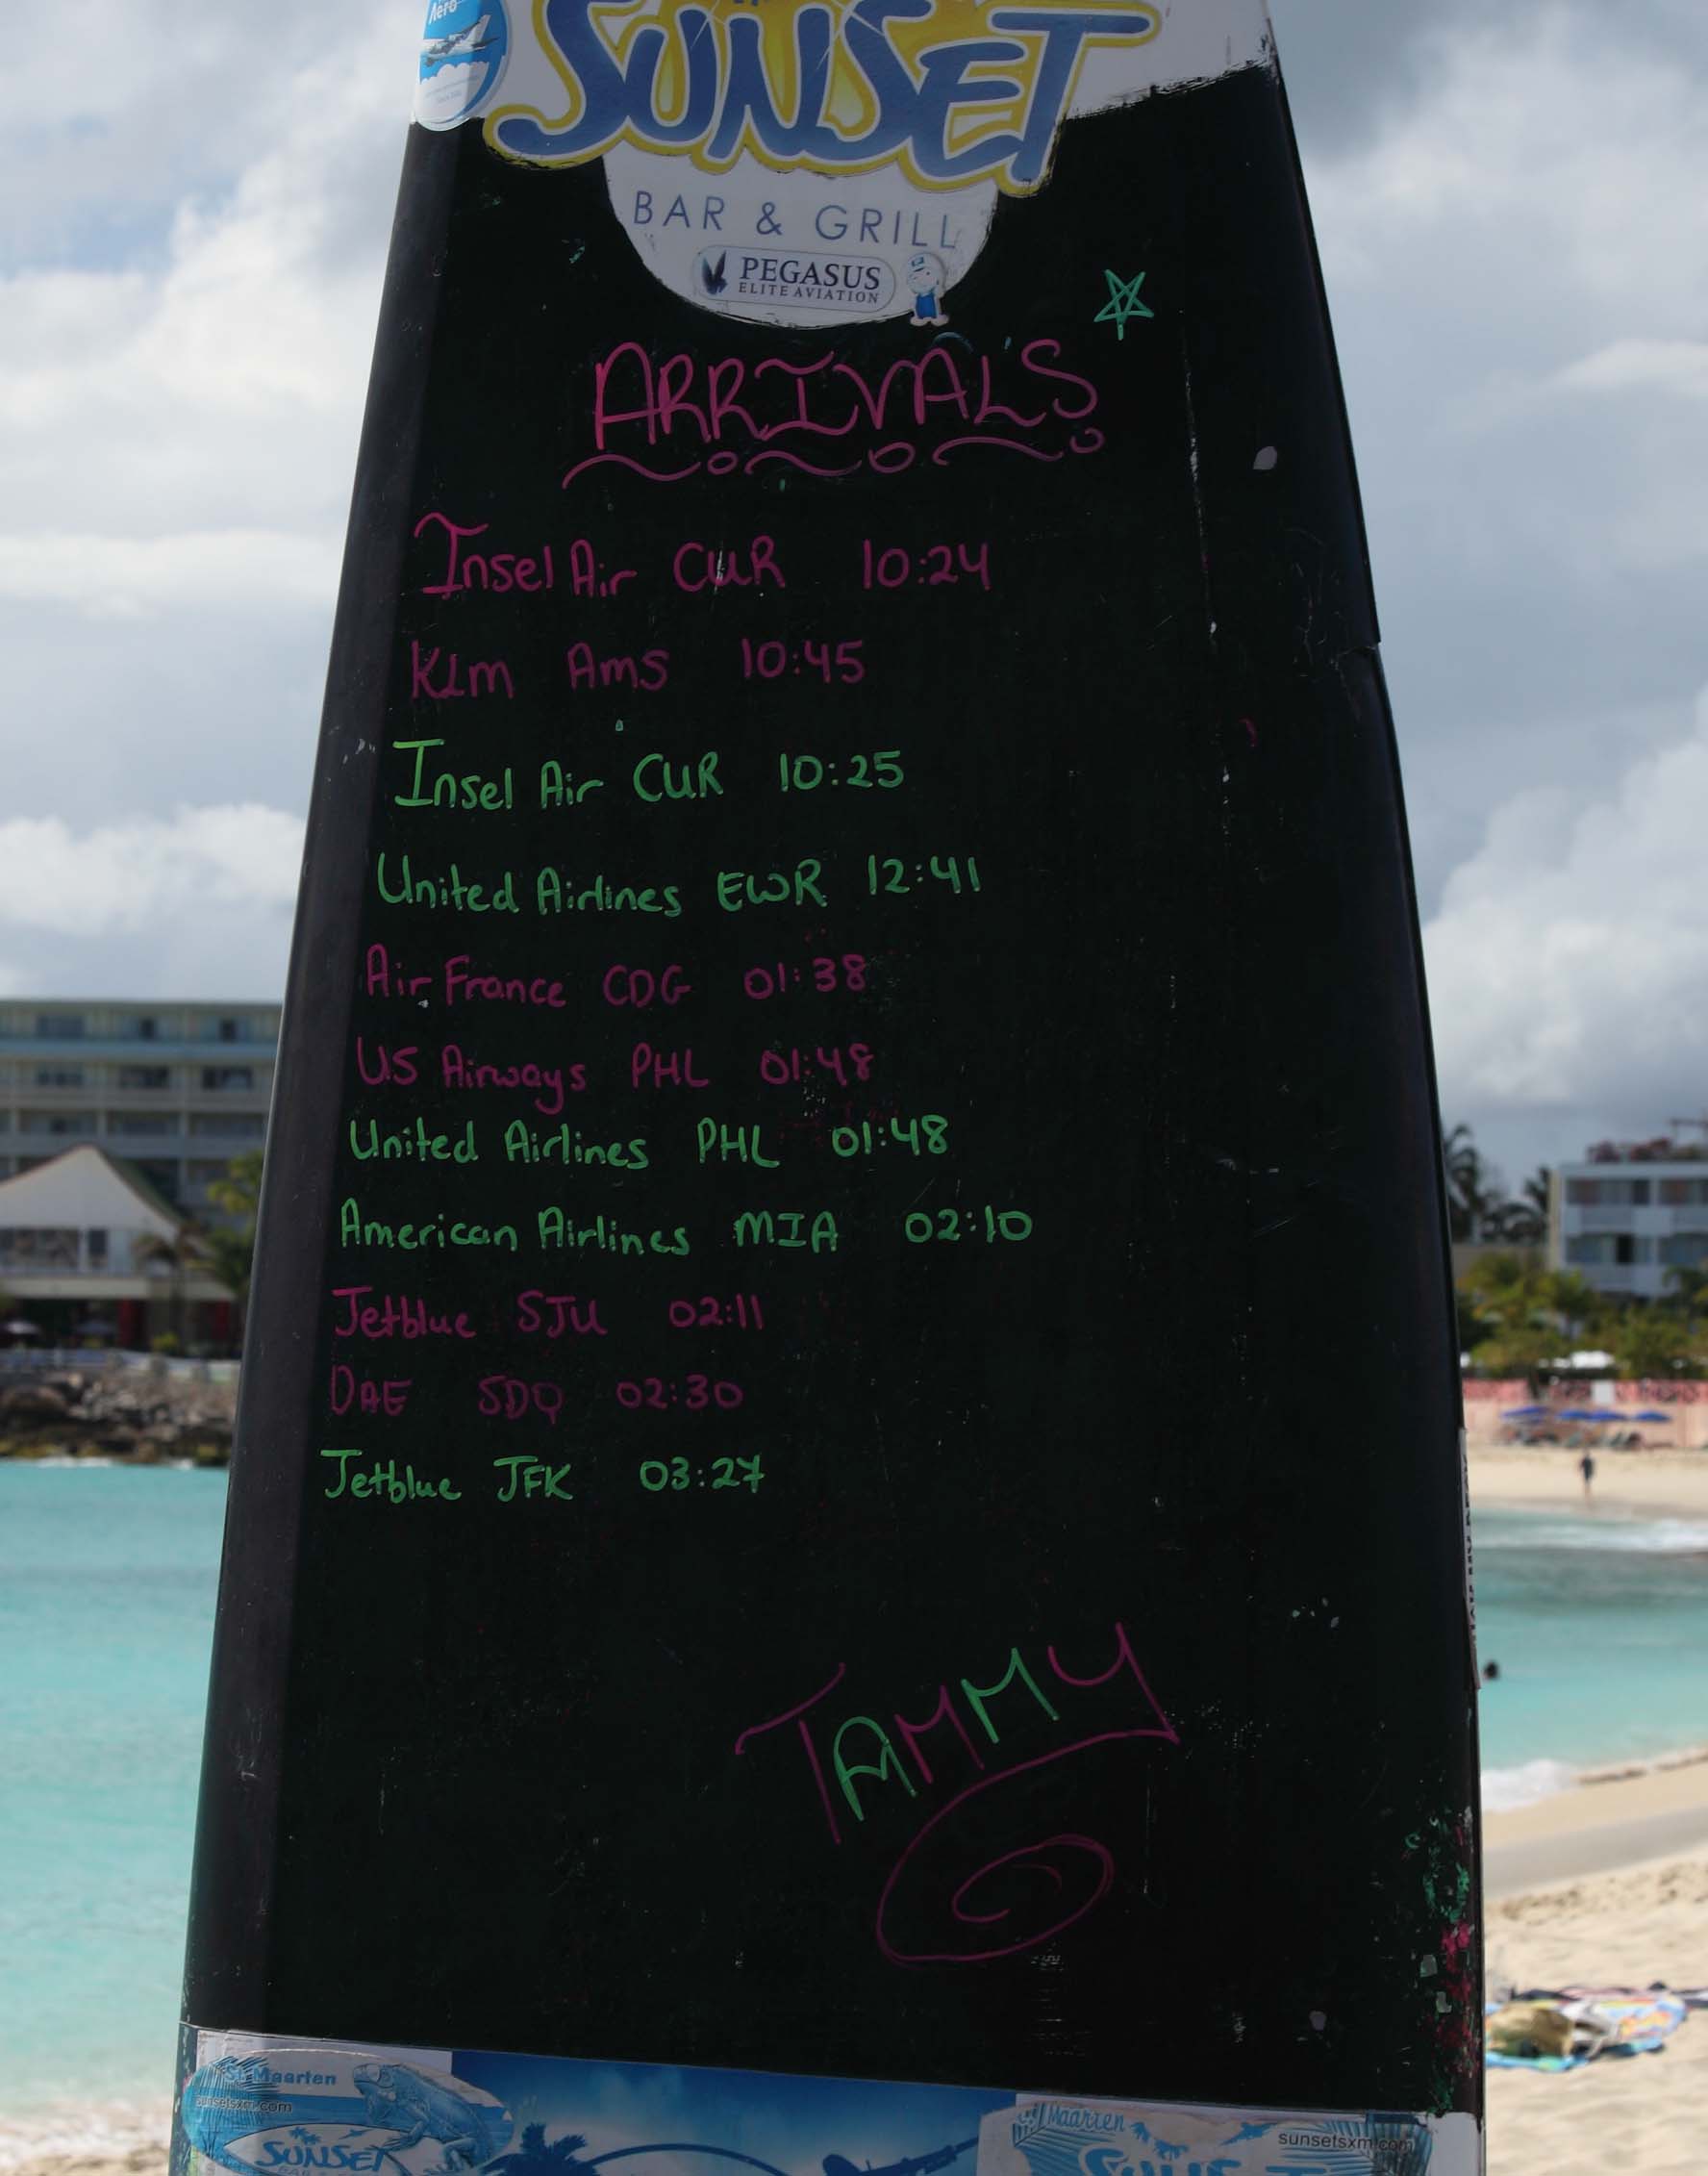 Aero
SUNSET
BAR & GRILL
PEGASUS
ELITE AVIATION
ARRIVALS
Insel Air CUR 10:24
Klm Ams 10:45
Insel Air CUR 10:25
United Airlines EWR 12:41
Air France CDG 01:38
US Airways PHL 01:48
United Airlines PHL 01:48
American Airlines MIA 02:10
Jetblue SJU 02:11
DAE SDQ 02:30
Jetblue JFK 03:27
TAMMY
St Maarten
sunsetsxm.com
SUNSET
St Maarten
sunsetsxm.com
SUNSET